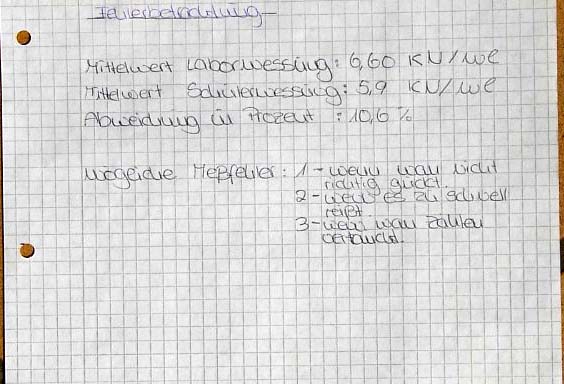 Fehlerbetrachtung
Mittelwert Labormessung: 6,60 KN/me
Mittelwert Schülermessung: 5,9 KN/me
Abweichung in Prozent : 10,6 %
Mögliche Meßfehler: 1 - wenn man nicht
richtig guckt.
2 - wenn es zu schnell
reißt.
3 - wenn man Zahlen
vertauscht.